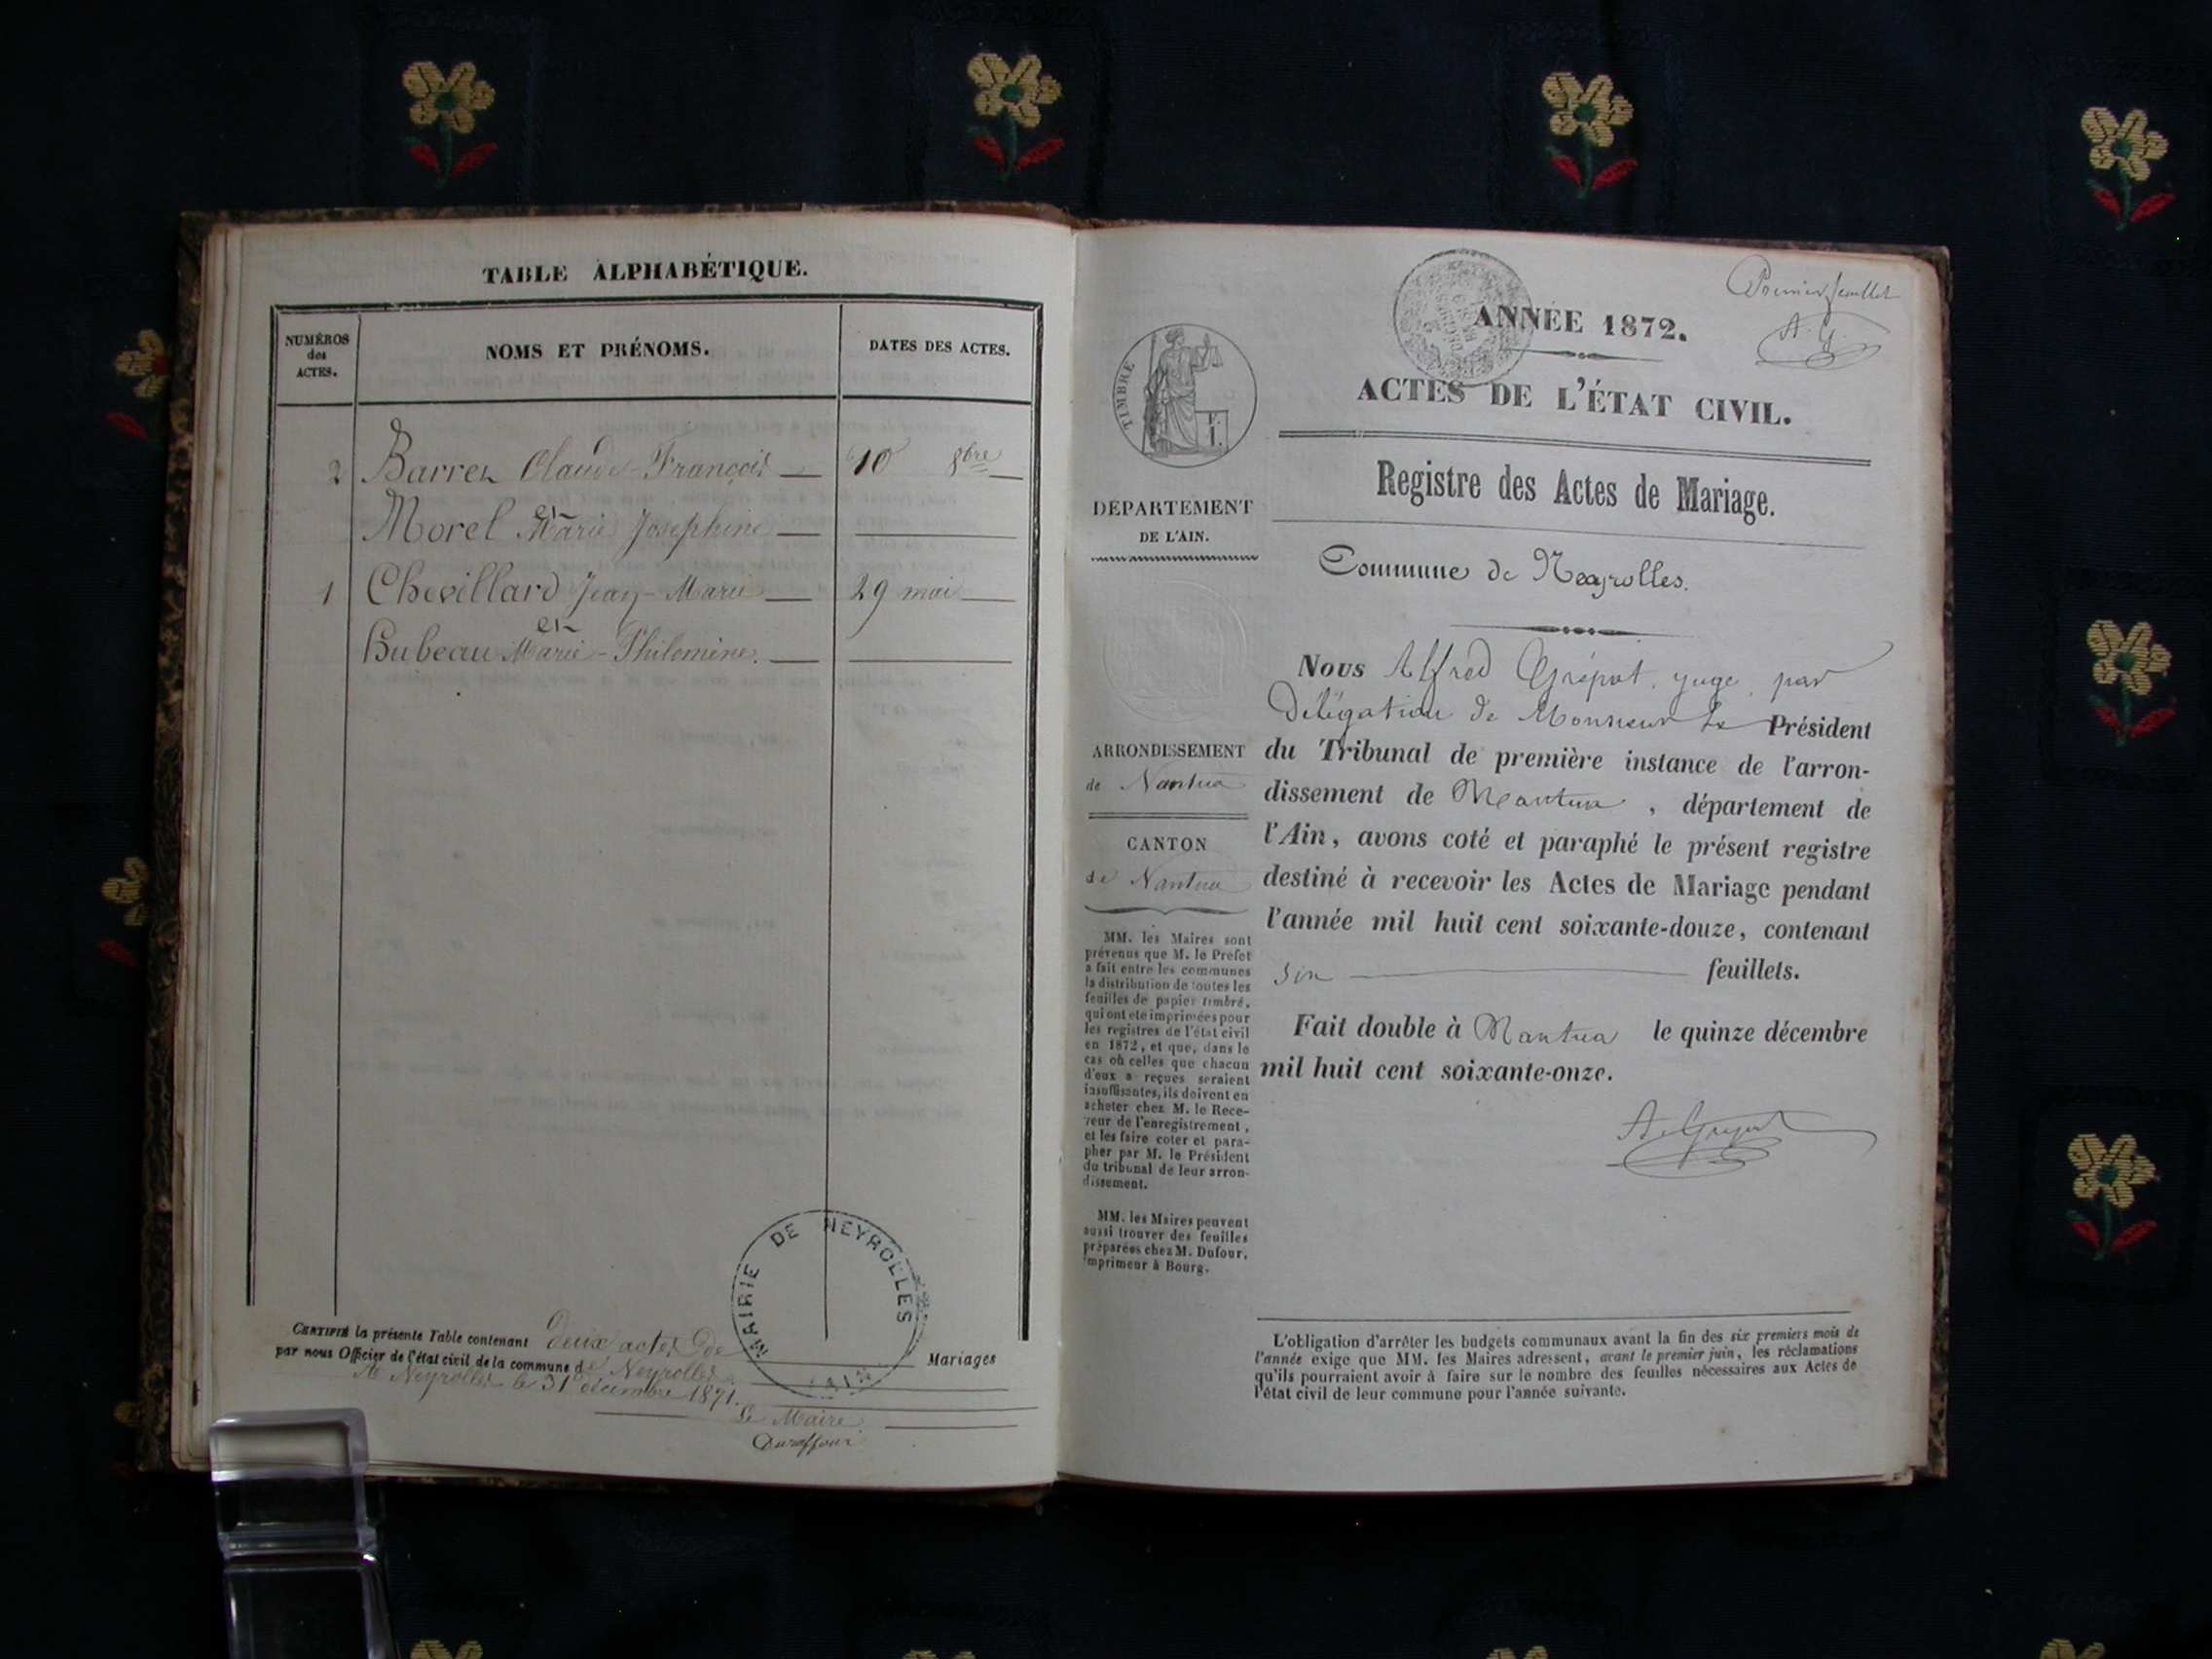 TABLE ALPHABÉTIQUE.
NUMÉROS
des
ACTES.
NOMS ET PRÉNOMS.
DATES DES ACTES.
2 Barrez Claude-François — 10 8bre —
et
Morel Marie Josephine —
1 Chevillard Jean-Marie — 29 mai —
et
Bubeau Marie-Philomène. —
CERTIFIÉ la présente Table contenant deux actes de Mariages
par nous Officier de l'état civil de la commune de Neyrolles
A Neyrolles le 31 décembre 1871.
Le Maire
MAIRIE DE NEYROLLES
(AIN)
Premier feuillet
A. G.
ANNÉE 1872.
ACTES DE L'ÉTAT CIVIL.
Registre des Actes de Mariage.
TIMBRE
DÉPARTEMENT
DE L'AIN.
Commune de Neyrolles.
Nous Alfred Grépat, juge, par
délégation de Monsieur le Président
du Tribunal de première instance de l'arron-
dissement de Nantua, département de
l'Ain, avons coté et paraphé le présent registre
destiné à recevoir les Actes de Mariage pendant
l'année mil huit cent soixante-douze, contenant
six — feuillets.
Fait double à Nantua le quinze décembre
mil huit cent soixante-onze.
ARRONDISSEMENT
de Nantua
CANTON
de Nantua
MM. les Maires sont
prévenus que M. le Préfet
a fait entre les communes
la distribution de toutes les
feuilles de papier timbré,
qui ont été imprimées pour
les registres de l'état civil
en 1872, et que, dans le
cas où celles que chacun
d'eux a reçues seraient
insuffisantes, ils doivent en
acheter chez M. le Rece-
veur de l'enregistrement,
et les faire coter et para-
pher par M. le Président
du tribunal de leur arron-
dissement.
MM. les Maires peuvent
aussi trouver des feuilles
préparées chez M. Dufour,
imprimeur à Bourg.
L'obligation d'arrêter les budgets communaux avant la fin des six premiers mois de
l'année exige que MM. les Maires adressent, avant le premier juin, les réclamations
qu'ils pourraient avoir à faire sur le nombre des feuilles nécessaires aux Actes de
l'état civil de leur commune pour l'année suivante.